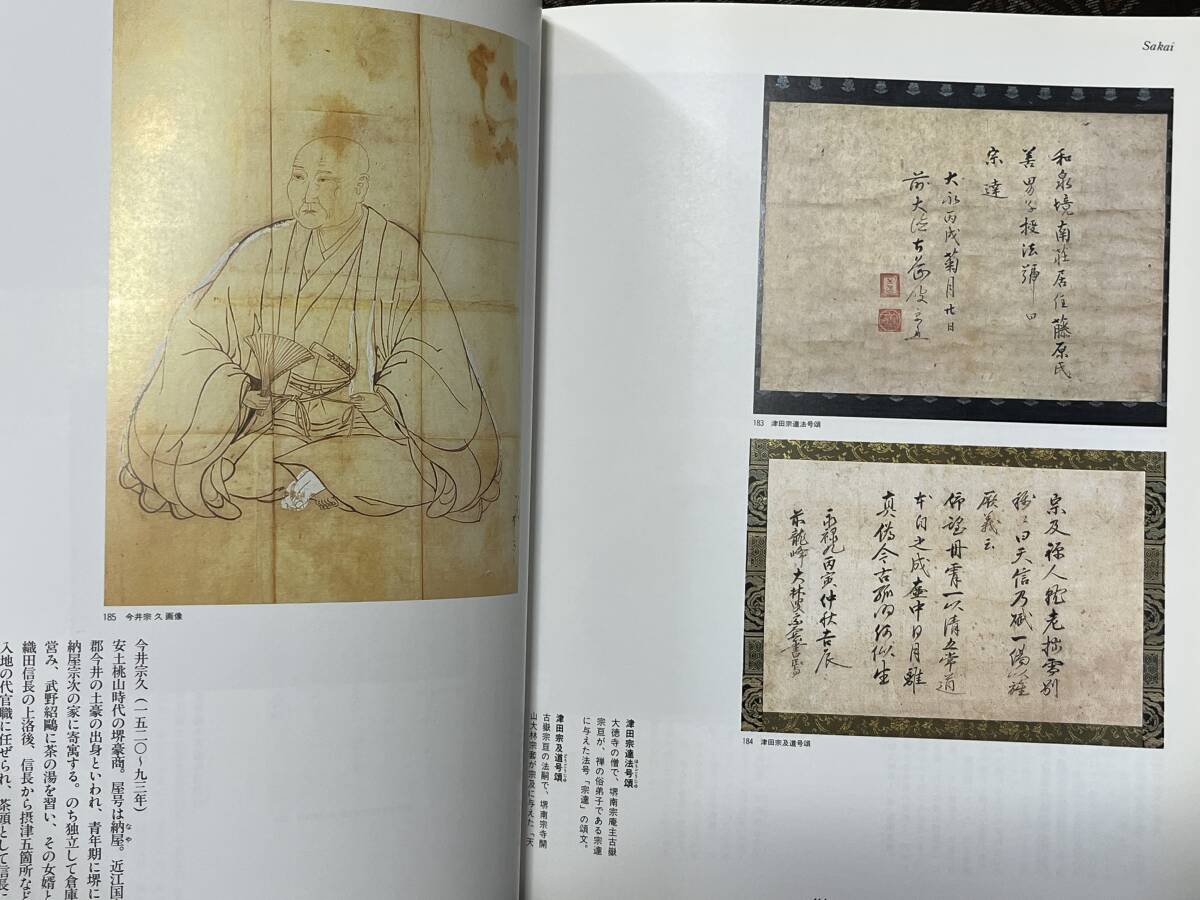 185 今井宗久画像
今井宗久（一五二〇～九三年）
安土桃山時代の堺豪商。屋号は納屋。近江国
なや
郡今井の土豪の出身といわれ、青年期に堺に
納屋宗次の家に寄寓する。のち独立して倉庫
営み、武野紹鷗に茶の湯を習い、その女婿と
織田信長の上洛後、信長から摂津五箇所など
入地の代官職に任ぜられ、茶頭として信長に
Sakai
和泉境南荘居住藤原氏
善男子授法號曰
宗達
大永丙戌菊月廿日
前大德古嶽
183 津田宗達法号頌
宗及禅人
曰天信乃賦一偈以
厥義云
丹霄一以清
之成壺中日月雖
真偽今古
永禄九丙寅仲秋吉辰
前龍峰大林
184 津田宗及道号頌
津田宗達法号頌
ほうごうじゅ
大徳寺の僧で、堺南宗庵主古嶽
宗亘が、禅の俗弟子である宗達
に与えた法号「宗達」の頌文。
津田宗及道号頌
どうごうじゅ
古嶽宗亘の法嗣で、堺南宗寺開
山大林宗套が宗及に与えた「天